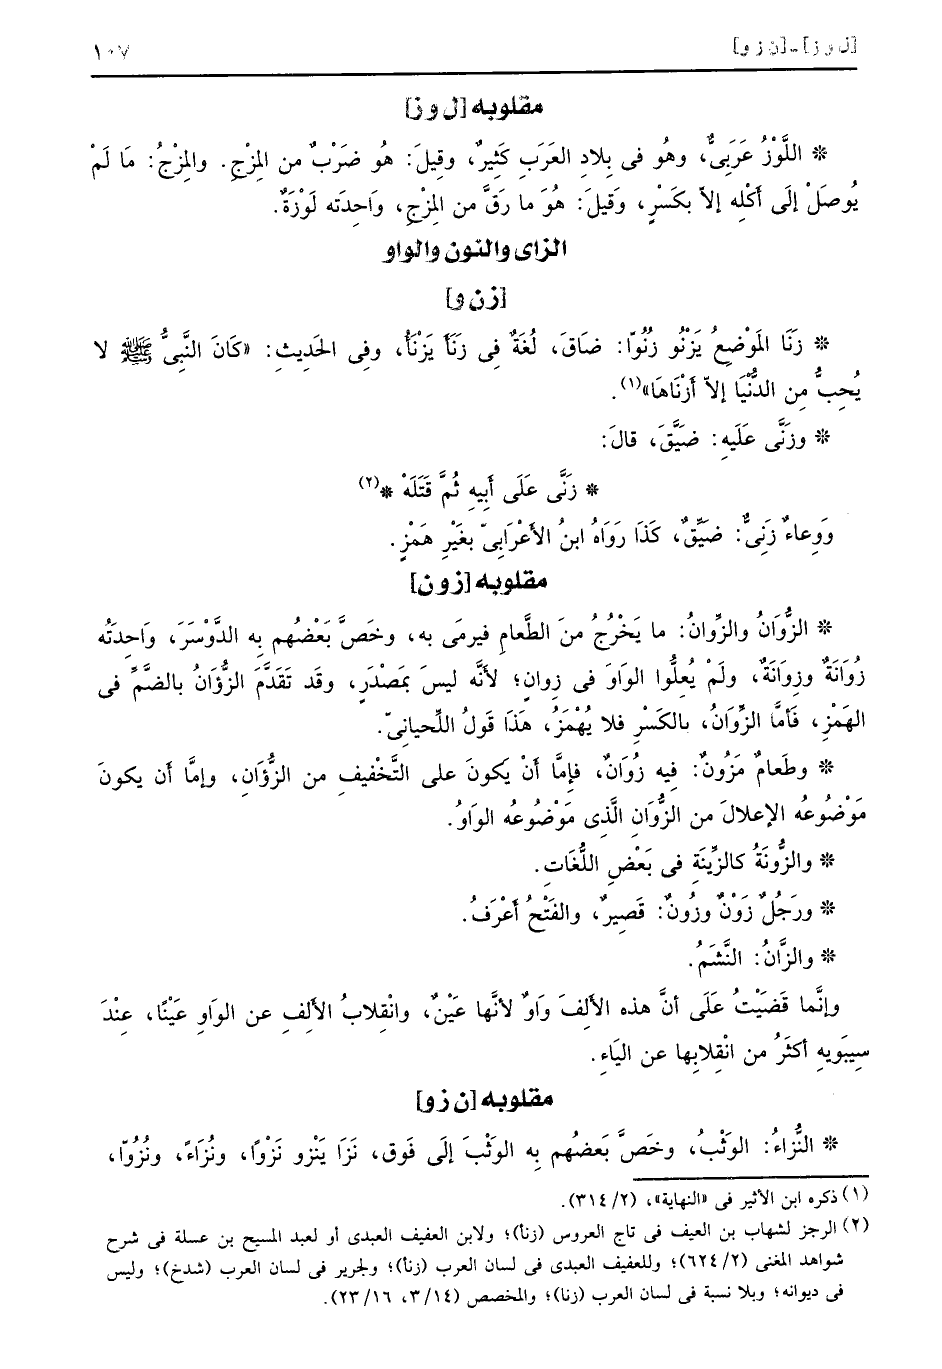 [ل و ز] - [ن ز و] ١٠٧
مقلوبه [ل و ز]
* اللَّوْزُ عَرَبىٌّ، وهُو فى بِلادِ العَرَبِ كَثِيرٌ، وقِيلَ: هُو ضَرْبٌ من المِزْجِ. والمِزْجُ: مَا لَمْ
يُوصَلْ إلَى أَكْلِه إلاّ بكَسْرٍ، وَقيلَ: هُوَ ما رَقَّ من المِزْجِ، وَاحِدَته لَوْزَةٌ.
الزاى والنون والواو
[ز ن و]
* زَنَا المَوْضعُ يَزْنُو زُنُوّا: ضاقَ، لُغَةٌ فى زنَأ يَزْنَأُ، وفى الحَديثِ: «كَانَ النَّبىُّ ﷺ لا
يُحِبُّ مِن الدُّنْيَا إلاّ أَزْنَاهَا»(١).
* وزَنَّى عَلَيهِ: ضيَّقَ، قالَ:
* زَنَّى علَى أَبيهِ ثُمَّ قَتَلَهْ *(٢)
وَوِعاءٌ زَنِىٌّ: ضيِّقٌ، كَذَا رَوَاهُ ابنُ الأعْرَابىّ بغَيْرِ هَمْزٍ.
مقلوبه [ز و ن]
* الزُّوَانُ والزِّوانُ: ما يَخْرُجُ منَ الطَّعامِ فيرمَى به، وخَصَّ بَعْضُهم بِه الدَّوْسَرَ، وَاحِدَتُه
زُوَانَةٌ وزِوَانَةٌ، ولَمْ يُعلُّوا الوَاوَ فى زِوانٍ؛ لأنَّه ليسَ بمَصْدَرٍ، وقد تَقَدَّمَ الزُّؤَانُ بالضمِّ فى
الهَمْزِ، فَأمَّا الزِّوَانُ، بالكَسْرِ فلا يُهْمَزُ، هَذَا قَولُ اللِّحيانىّ.
* وطَعامٌ مَزُونٌ: فِيه زُوَانٌ، فإمَّا أنْ يَكونَ على التَّخْفيفِ من الزُّؤَانِ، وإمَّا أن يكونَ
مَوْضُوعُه الإعلالَ من الزُّوَانِ الَّذِى مَوْضُوعُه الوَاوُ.
* والزُّونَةُ كالزِّينَةِ فى بَعْضِ اللُّغَاتِ.
* ورَجُلٌ زَوْنٌ وزُونٌ: قَصِيرٌ، والفَتْحُ أَعْرَفُ.
* والزَّانُ: النَّشَمُ.
وإنَّما قَضَيْتُ عَلَى أنَّ هذه الألِفَ وَاوٌ لأنَّها عَيْنٌ، وانْقِلابُ الألِفِ عن الوَاوِ عَيْنًا، عِنْدَ
سِيبَويهِ أكثَرُ من انْقِلابِها عن اليَاءِ.
مقلوبه [ن ز و]
* النُّزاءُ: الوَثْبُ، وخَصَّ بَعضُهم بِه الوَثْبَ إلَى فَوق، نَزَا يَنْزو نَزْوًا، ونُزَاءً، ونُزُوّا،
(١) ذكره ابن الأثير فى «النهاية»، (٢/ ٣١٤).
(٢) الرجز لشهاب بن العيف فى تاج العروس (زنأ)؛ ولابن العفيف العبدى أو لعبد المسيح بن عسلة فى شرح
شواهد المغنى (٢/ ٦٢٤)؛ وللعفيف العبدى فى لسان العرب (زنأ)؛ ولجرير فى لسان العرب (شدخ)؛ وليس
فى ديوانه؛ وبلا نسبة فى لسان العرب (زنا)؛ والمخصص (١٤/ ٣، ١٦/ ٢٣).